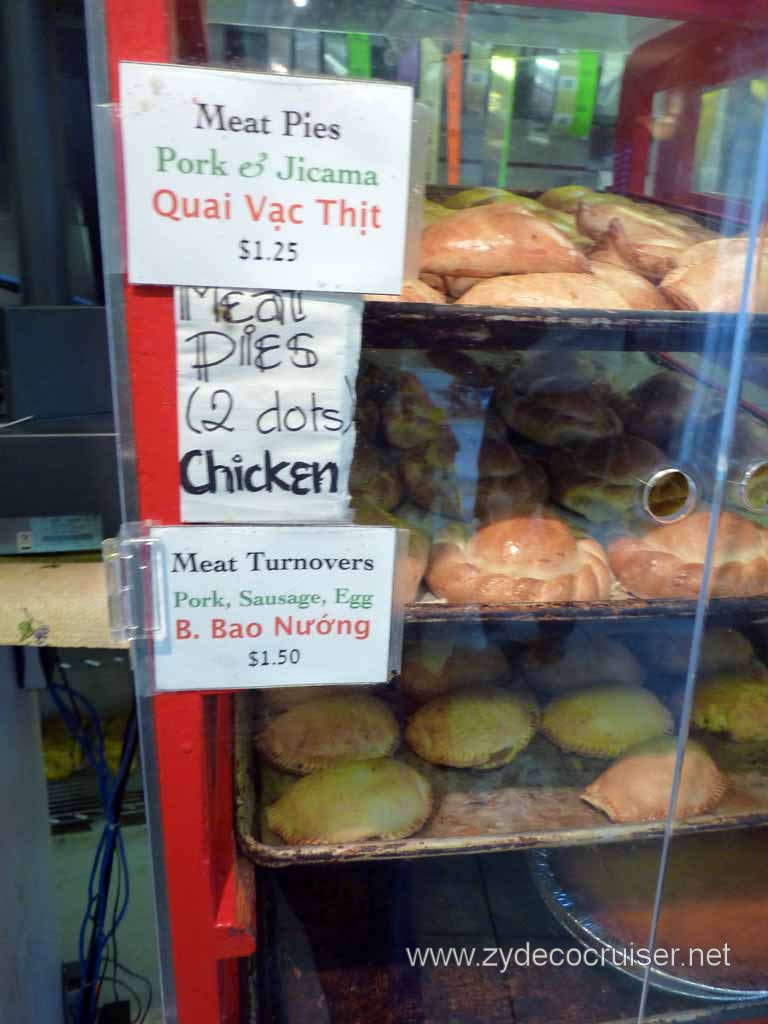 Meat Pies
Pork & Jicama
Quai Vạc Thịt
$1.25
Meat
Pies
(2 dots)
Chicken
Meat Turnovers
Pork, Sausage, Egg
B. Bao Nướng
$1.50
www.zydecocruiser.net